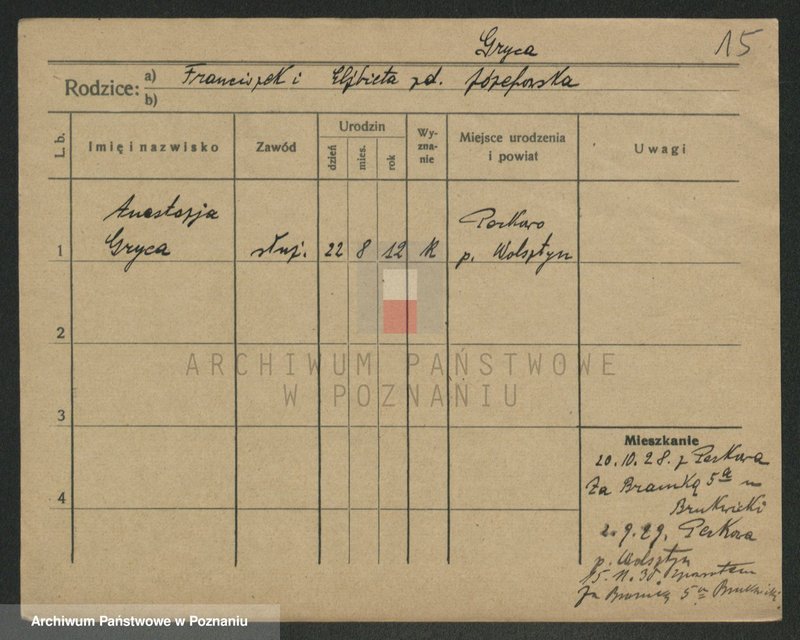 Gryca
15
Rodzice:
a) Franciszek i Elżbieta zd. Józefowska
b)
L. b.
Imię i nazwisko
Zawód
Urodzin
dzień
mies.
rok
Wy-
zna-
nie
Miejsce urodzenia
i powiat
Uwagi
1
Anastazja
Gryca
służ.
22
8
12
K
Perkowo
p. Wolsztyn
2
3
4
ARCHIWUM PAŃSTWOWE
W POZNANIU
Mieszkanie
20.10.28. z Perkowa
Za Bramką 5a u
Brukwicki
2.9.29. Perkowa
p. Wolsztyn
15.11.30
Za Bramką 5a Brukwicki
Archiwum Państwowe w Poznaniu